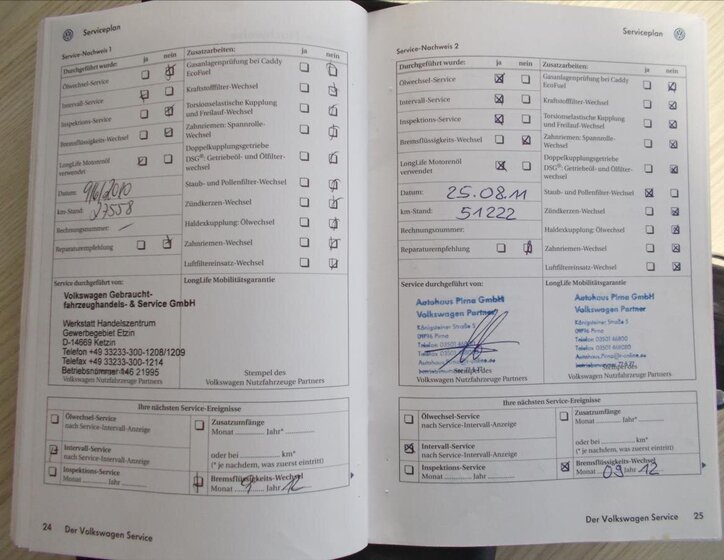 Serviceplan
Service-Nachweis 1
Durchgeführt wurde: ja nein
Ölwechsel-Service
Intervall-Service
Inspektions-Service
Bremsflüssigkeits-Wechsel
LongLife Motorenöl
verwendet
Datum:
km-Stand: 27558
Rechnungsnummer: –
Reparaturempfehlung
Zusatzarbeiten: ja nein
Gasanlagenprüfung bei Caddy
EcoFuel
Kraftstofffilter-Wechsel
Torsionselastische Kupplung
und Freilauf-Wechsel
Zahnriemen: Spannrolle-
Wechsel
Doppelkupplungsgetriebe
DSG®: Getriebeöl- und Ölfilter-
wechsel
Staub- und Pollenfilter-Wechsel
Zündkerzen-Wechsel
Haldexkupplung: Ölwechsel
Zahnriemen-Wechsel
Luftfiltereinsatz-Wechsel
Service durchgeführt von:
Volkswagen Gebraucht-
fahrzeughandels- & Service GmbH
Werkstatt Handelszentrum
Gewerbegebiet Etzin
D-14669 Ketzin
Telefon +49 33233-300-1208/1209
Telefax +49 33233-300-1214
Betriebsnummer 146 21995
Volkswagen Nutzfahrzeuge Partners
LongLife Mobilitätsgarantie
Stempel des
Volkswagen Nutzfahrzeuge Partners
Ihre nächsten Service-Ereignisse
Ölwechsel-Service
nach Service-Intervall-Anzeige
Intervall-Service
nach Service-Intervall-Anzeige
Inspektions-Service
Monat ........ Jahr ........
Zusatzumfänge
Monat ........ Jahr* ........
oder bei ........ km*
(* je nachdem, was zuerst eintritt)
Bremsflüssigkeits-Wechsel
Monat 9 Jahr 12
24 Der Volkswagen Service
Serviceplan
Service-Nachweis 2
Durchgeführt wurde: ja nein
Ölwechsel-Service
Intervall-Service
Inspektions-Service
Bremsflüssigkeits-Wechsel
LongLife Motorenöl
verwendet
Datum: 25.08.11
km-Stand: 51222
Rechnungsnummer:
Reparaturempfehlung
Zusatzarbeiten: ja nein
Gasanlagenprüfung bei Caddy
EcoFuel
Kraftstofffilter-Wechsel
Torsionselastische Kupplung
und Freilauf-Wechsel
Zahnriemen: Spannrolle-
Wechsel
Doppelkupplungsgetriebe
DSG®: Getriebeöl- und Ölfilter-
wechsel
Staub- und Pollenfilter-Wechsel
Zündkerzen-Wechsel
Haldexkupplung: Ölwechsel
Zahnriemen-Wechsel
Luftfiltereinsatz-Wechsel
Service durchgeführt von:
Autohaus Pirna GmbH
Volkswagen Partner
Königsteiner Straße 5
01796 Pirna
Telefon 03501
Stempel des
Volkswagen Nutzfahrzeuge Partners
LongLife Mobilitätsgarantie
Autohaus Pirna GmbH
Volkswagen Partner
Königsteiner Straße 5
01796 Pirna
Telefon 03501
Stempel des
Volkswagen Nutzfahrzeuge Partners
Ihre nächsten Service-Ereignisse
Ölwechsel-Service
nach Service-Intervall-Anzeige
Intervall-Service
nach Service-Intervall-Anzeige
Inspektions-Service
Monat ........ Jahr ........
Zusatzumfänge
Monat ........ Jahr* ........
oder bei ........ km*
(* je nachdem, was zuerst eintritt)
Bremsflüssigkeits-Wechsel
Monat 09 Jahr 12
Der Volkswagen Service 25